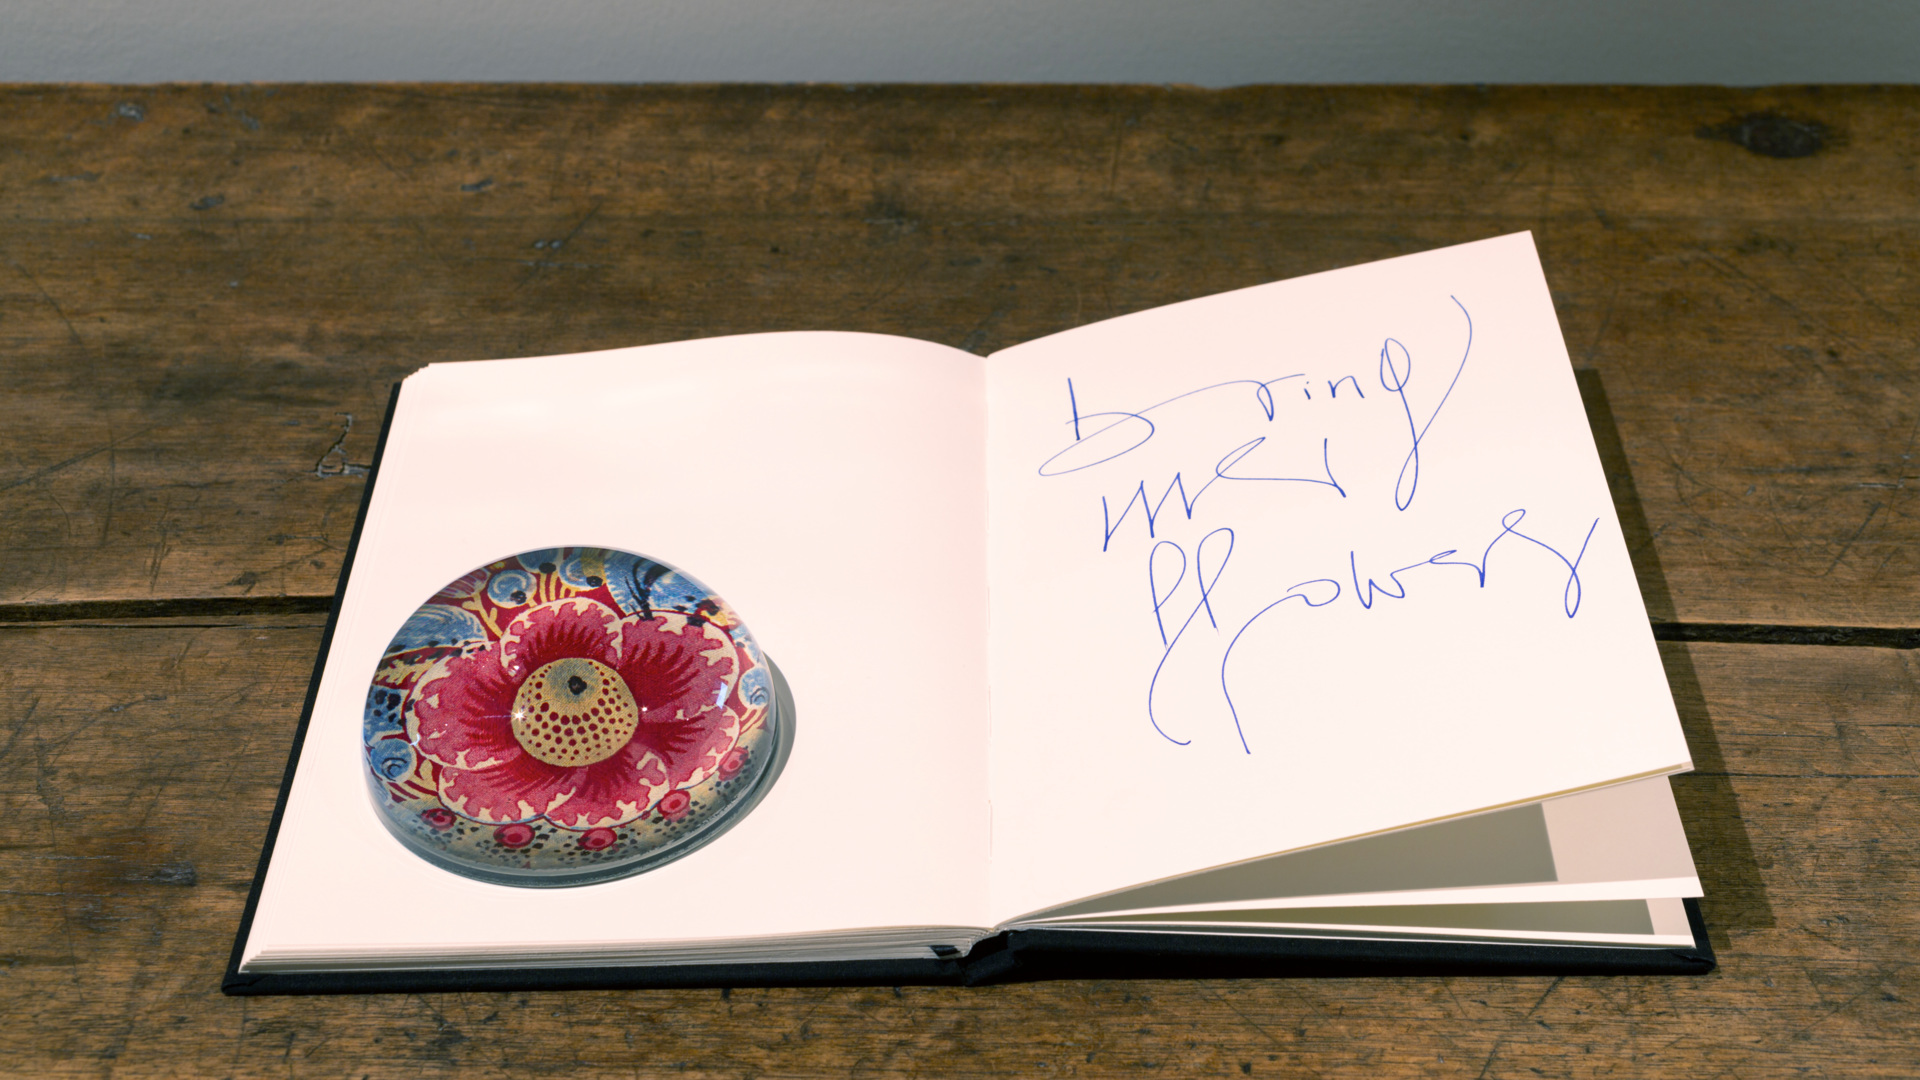 bring
me
flowers